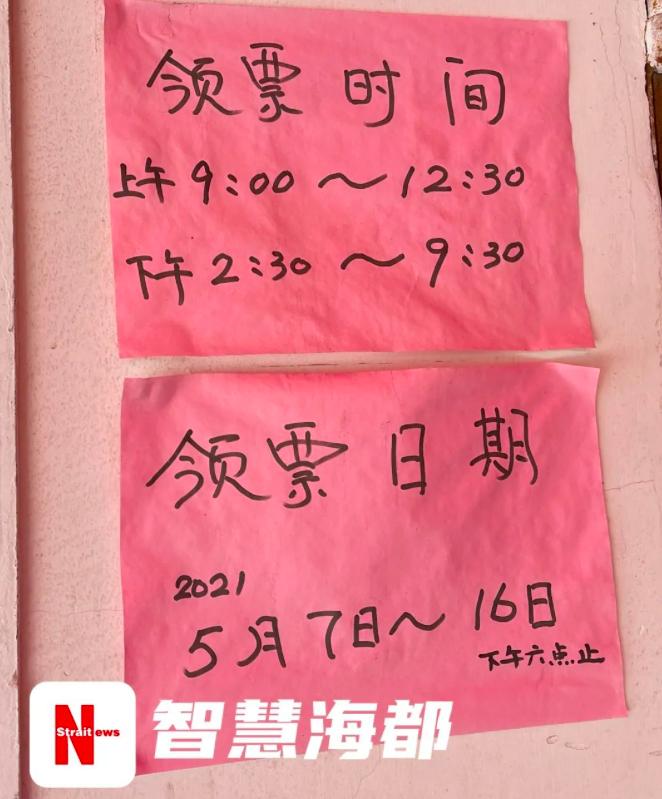 领票时间
上午9:00～12:30
下午2:30～9:30
领票日期
2021
5月7日～16日
下午六点止
N
Straitews
智慧海都